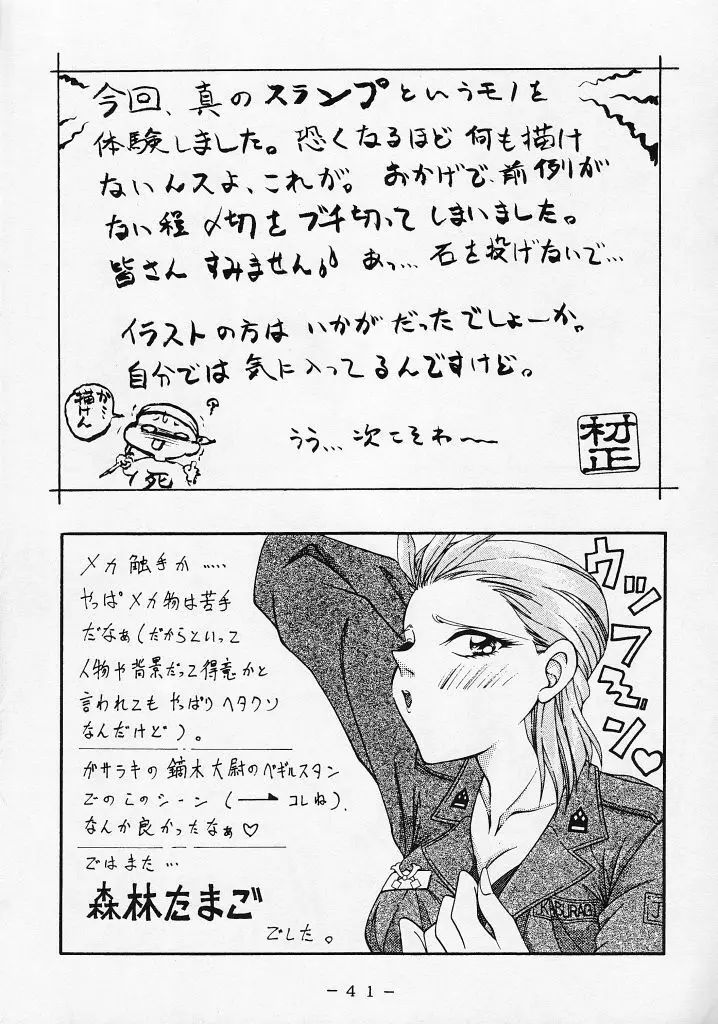 今回、真のスランプというモノを
体験しました。恐くなるほど何も描け
ないんスよ、これが。おかげで、前例が
ない程〆切をブチ切ってしまいました。
皆さんすみません♪あっ…石を投げないで…
イラストの方はいかがだったでしょーか。
自分では気に入ってるんですけど。
が…
描けん
うう…次こそわ〜
死
村正
メカ触手か……
やっぱメカ物は苦手
だなぁ(だからといって
人物や背景だって得意かと
言われてもやっぱりヘタクソ
なんだけど)。
ガサラキの鏑木大尉のベギルスタン
でのこのシーン(→コレね)、
なんか良かったなぁ♡
ではまた…
森林たまご
でした。
ウッフ〜ン♡
KABURAGI
J
- 41 -